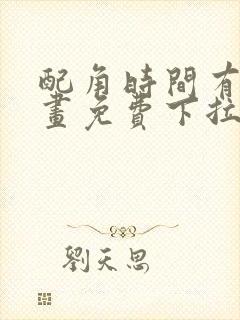 配角時間有
畫免費下拉
劉天思